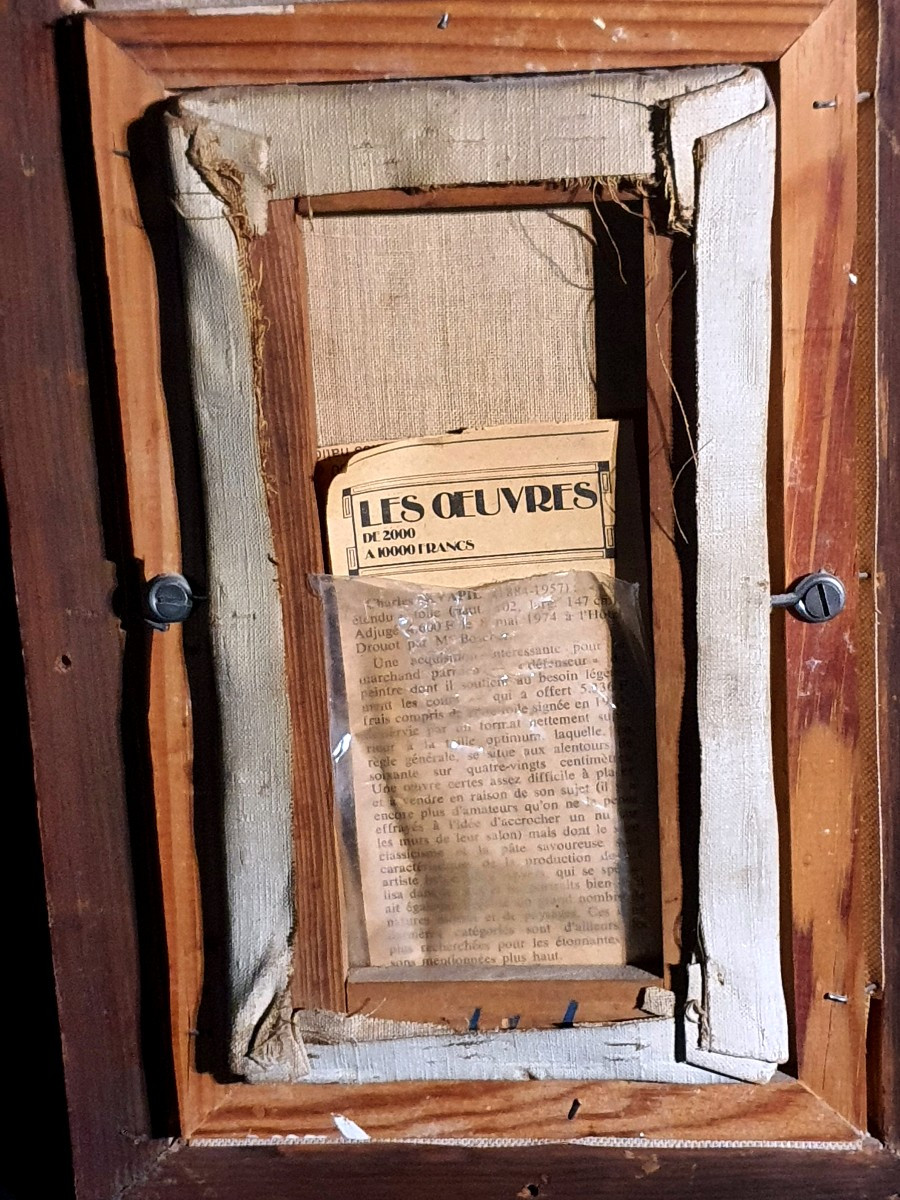 LES ŒUVRES
DE 2000
A 10000 FRANCS
Charles 884-1957)
étendu toile (haut 102, larg. 147 cm
Adjugé 4.600 F le 8 mai 1974 à l'Hô
Drouot par Mᵉ
Une acquisition intéressante pour
marchand « défenseur »
peintre dont il soutient au besoin lége
ment les qui a offert 5.036
frais compris signée en 1
par un format nettement su
rieur à la taille optimum, laquelle,
règle générale, se situe aux alentours
soixante sur quatre-vingts centimèt
Une œuvre certes assez difficile à pla
et à vendre en raison de son sujet (il
encore plus d'amateurs qu'on ne pen
effrayés à l'idée d'accrocher un nu
les murs de leur salon) mais dont le
classicisme et la pâte savoureuse
de la production de
artiste qui se spé
lisa dans bien
ait nombr
natures et de paysages. Ces
catégories sont d'ailleurs
plus recherchées pour les étonnantes
sons mentionnées plus haut.